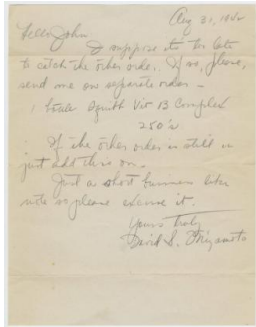 Aug 31, 1942
Hello John
I suppose its too late
to catch the other order. If so, please,
send me on separate order —
1 bottle Squibb Vit B Complex
250's
If the other order is still in
just add this on —
Just a short business letter
note so please excuse it.
Yours truly
David S.